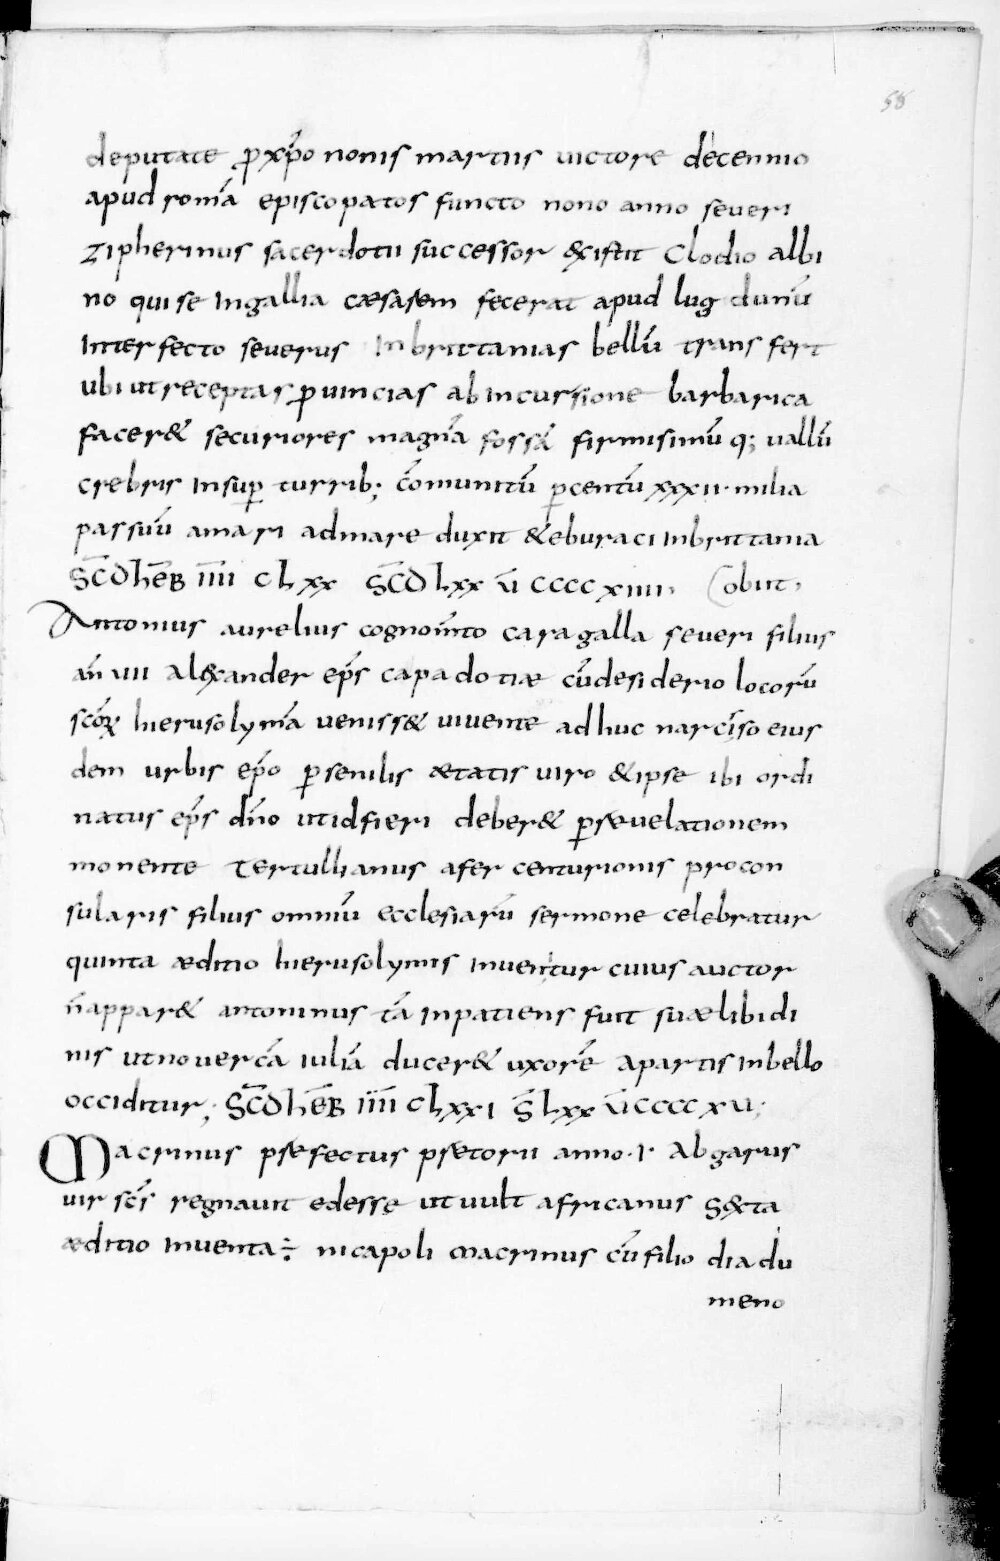 58
deputate ꝓ xp̄o nonis martiis uictore decennio
apud romā episcopatos functo nono anno seueri
Zipherinus sacerdotii successor &xistit Clodio albi
no qui se In gallia cæsarem fecerat apud lugdunū
Interfecto seuerus In brittanias bellū trans fert
ubi ut receptas ꝓuincias ab incursione barbarica
facer& securiores magnā fossā firmisimū q; uallū
crebris Insuꝑ turrib; cōmunitū ꝑ centū xxxii· milia
passuū a mari ad mare duxit & eburaci In brittania
SCD̄ HEB̄ IIII CLxx SCD̄ Lxx V̄ CCCC xiiii, obiit,
Antonius aurelius cognom̄to caragalla seueri filius
an̄ uii Al&xander ep̄s capadotiæ cū desiderio locorū
scōꝝ hierusolymā uenisset& uiuente adhuc narciso eius
dem urbis ep̄o ꝑsenilis ætatis uiro & ipse ibi ordi
natus ep̄s dn̄o ut id fieri deber& ꝑ reuelationem
monente Tertullianus afer centurionis procon
sularis filius omniū ecclesiarū sermone celebratur
quinta æditio hierusolymis Inuenitur cuius auctor
n̄ appar& antoninus tā Inpatiens fuit suæ libidi
nis ut nouercā iuliā ducer& uxorē A partis In bello
occiditur; SCD̄ HEB̄ IIII CLxxI S̄ Lxx V̄ CCCC xu;
Macrinus præfectus prætorii anno · I · Abgarus
uir sc̄s regnauit edesse ut uult africanus S&xta
æditio Inuenta nicapoli Macrinus cū filio diadu
meno